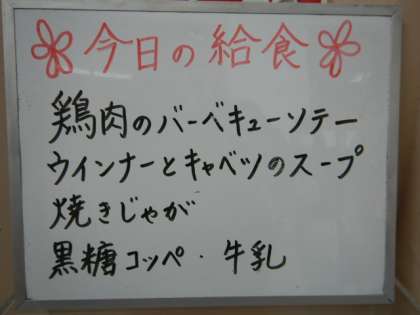 今日の給食
鶏肉のバーベキューソテー
ウインナーとキャベツのスープ
焼きじゃが
黒糖コッペ・牛乳